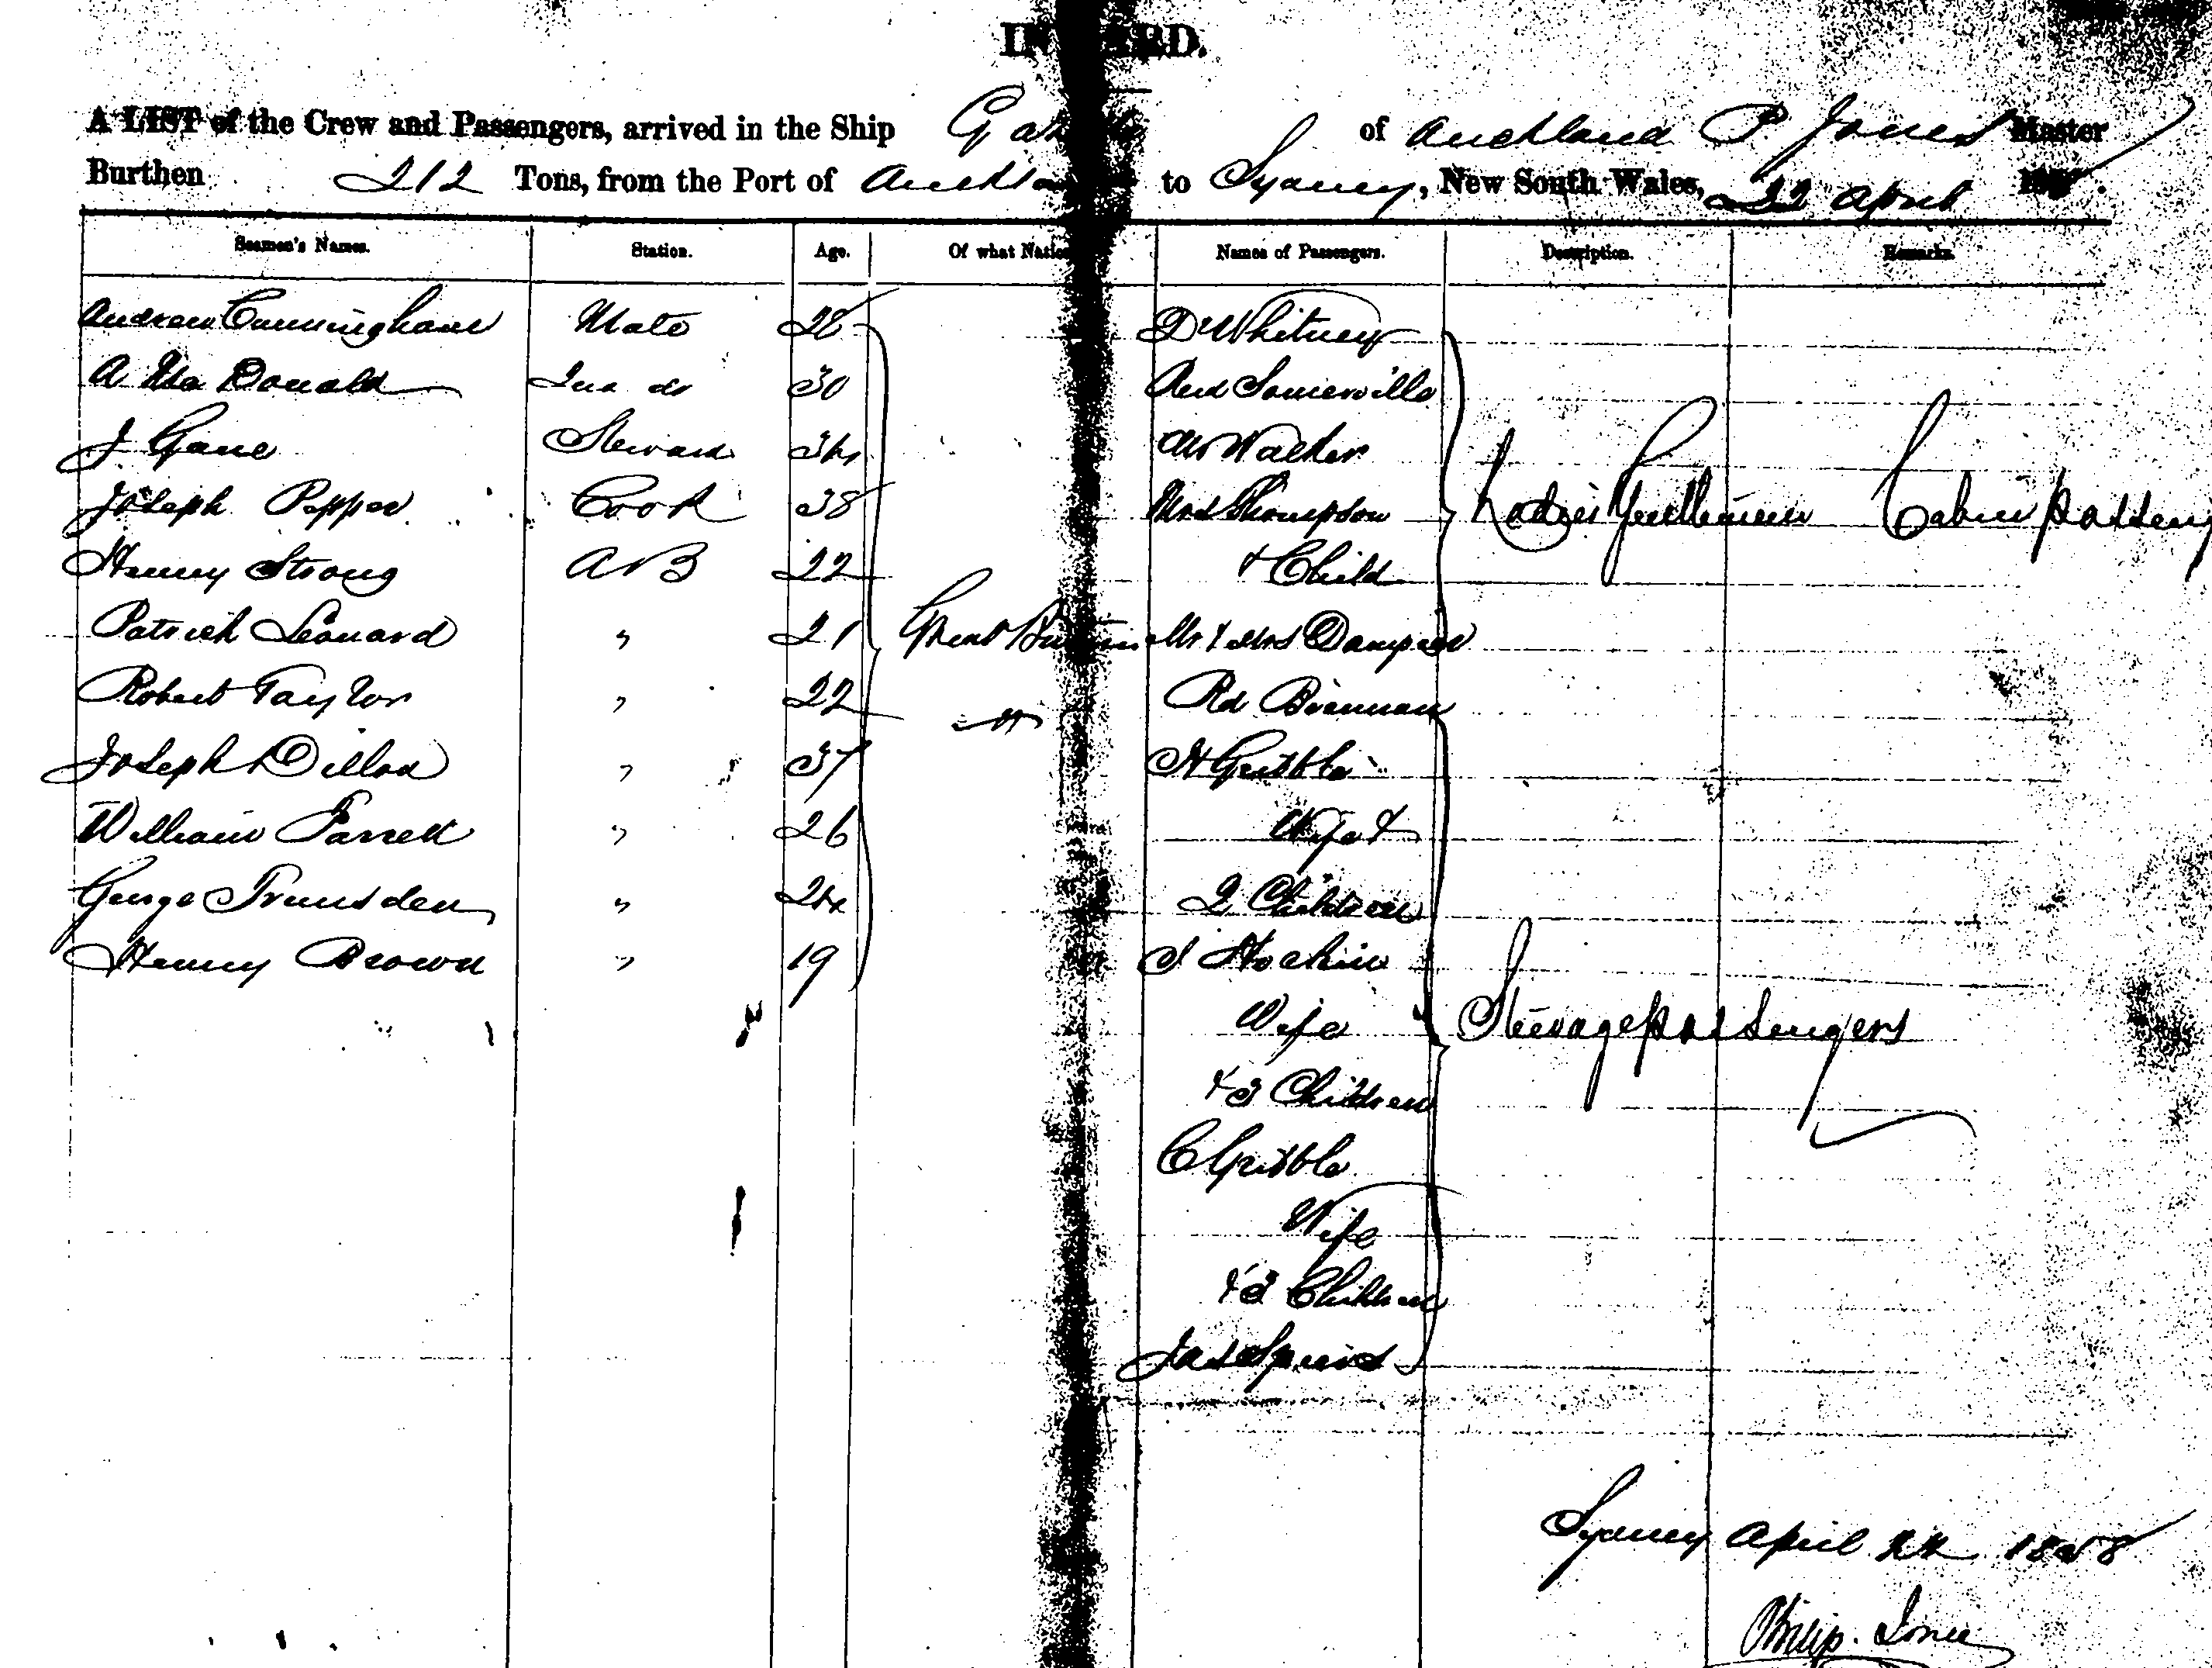 INWARD.
A LIST of the Crew and Passengers, arrived in the Ship of Auckland P Jones Master
Burthen 212 Tons, from the Port of Auckland to Sydney, New South Wales, 22 April
Seamen's Names. Station. Age. Of what Nation Names of Passengers. Description. Remarks.
Andrew Cunningham Mate 28 Dr Whitney
A Mc Donald 2nd do 30 Revd Somerville
J Gane Steward 34 Mr Walker
Joseph Pepper Cook 38 Mrs Thompson Ladies Gentlemen Cabin passeng
Henry Strong AB 22 + Child
Patrick Leonard " 21 Great Britain Mr & Mrs Dampier
Robert Taylor " 22 Rd Brennan
Joseph Dillon " 37 H Gribble
William Farrell " 26 Wife &
George " 24 2 Children
Henry Brown " 19 S Hockin
Wife Steerage passengers
& 3 Children
C Gribble
Wife
& 3 Children
Jas Spiers
Sydney April 22 1858
Philip Jones